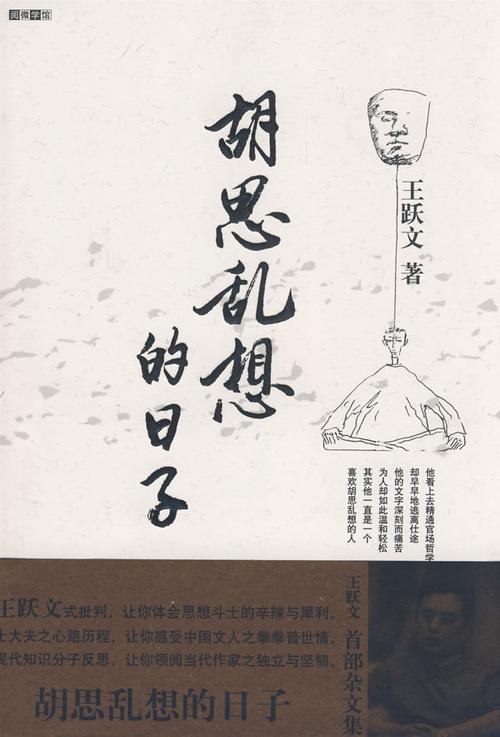 阅微学馆
胡思乱想
的日子
王跃文 著
他看上去精通官场哲学
却早早地逃离仕途
他的文字深刻而痛苦
为人却如此温和轻松
其实他一直是一个
喜欢胡思乱想的人
王跃文式批判。让你体会思想斗士的辛辣与犀利。
士大夫之心路历程，让你感受中国文人之拳拳普世情。
现代知识分子反思，让你领阅当代作家之独立与坚韧。
胡思乱想的日子
王跃文 首部杂文集